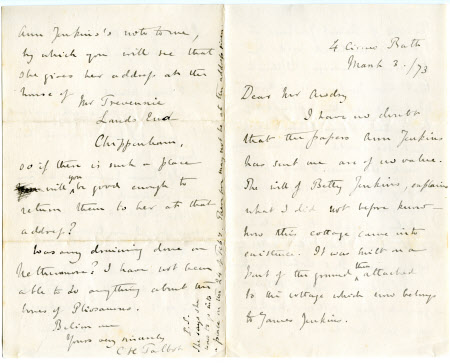 4 Circus Bath
March 3. /73
Dear Mr Awdry
I have no doubt
that the papers Ann Jenkins
has sent me are of no value.
The will of Betty Jenkins, explains
what I did not before know—
how this cottage came into
existence. It was built on a
part of the ground then attached
to the cottage which now belongs
to James Jenkins.
Ann Jenkins's note to me,
by which you will see that
she gives her address at the
house of
Mr Trevennie
Lands End
Chippenham,
so if there is such a place
will you be good enough to
return them to her at that
address?
Was any draining done on
Nethermore? I have not been
able to do anything about the
bones of Pliosaurus.
Believe me
Yours very sincerely
C R Talbot
P.S.
She says she